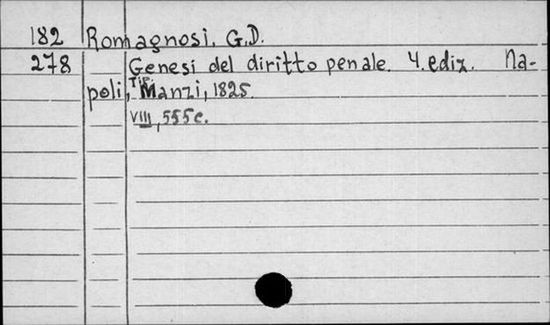 182 Romagnosi, G.D.
278 Genesi del diritto penale. 4. ediz. Na-
poli, Tip. Manzi, 1825.
VIII, 555 c.